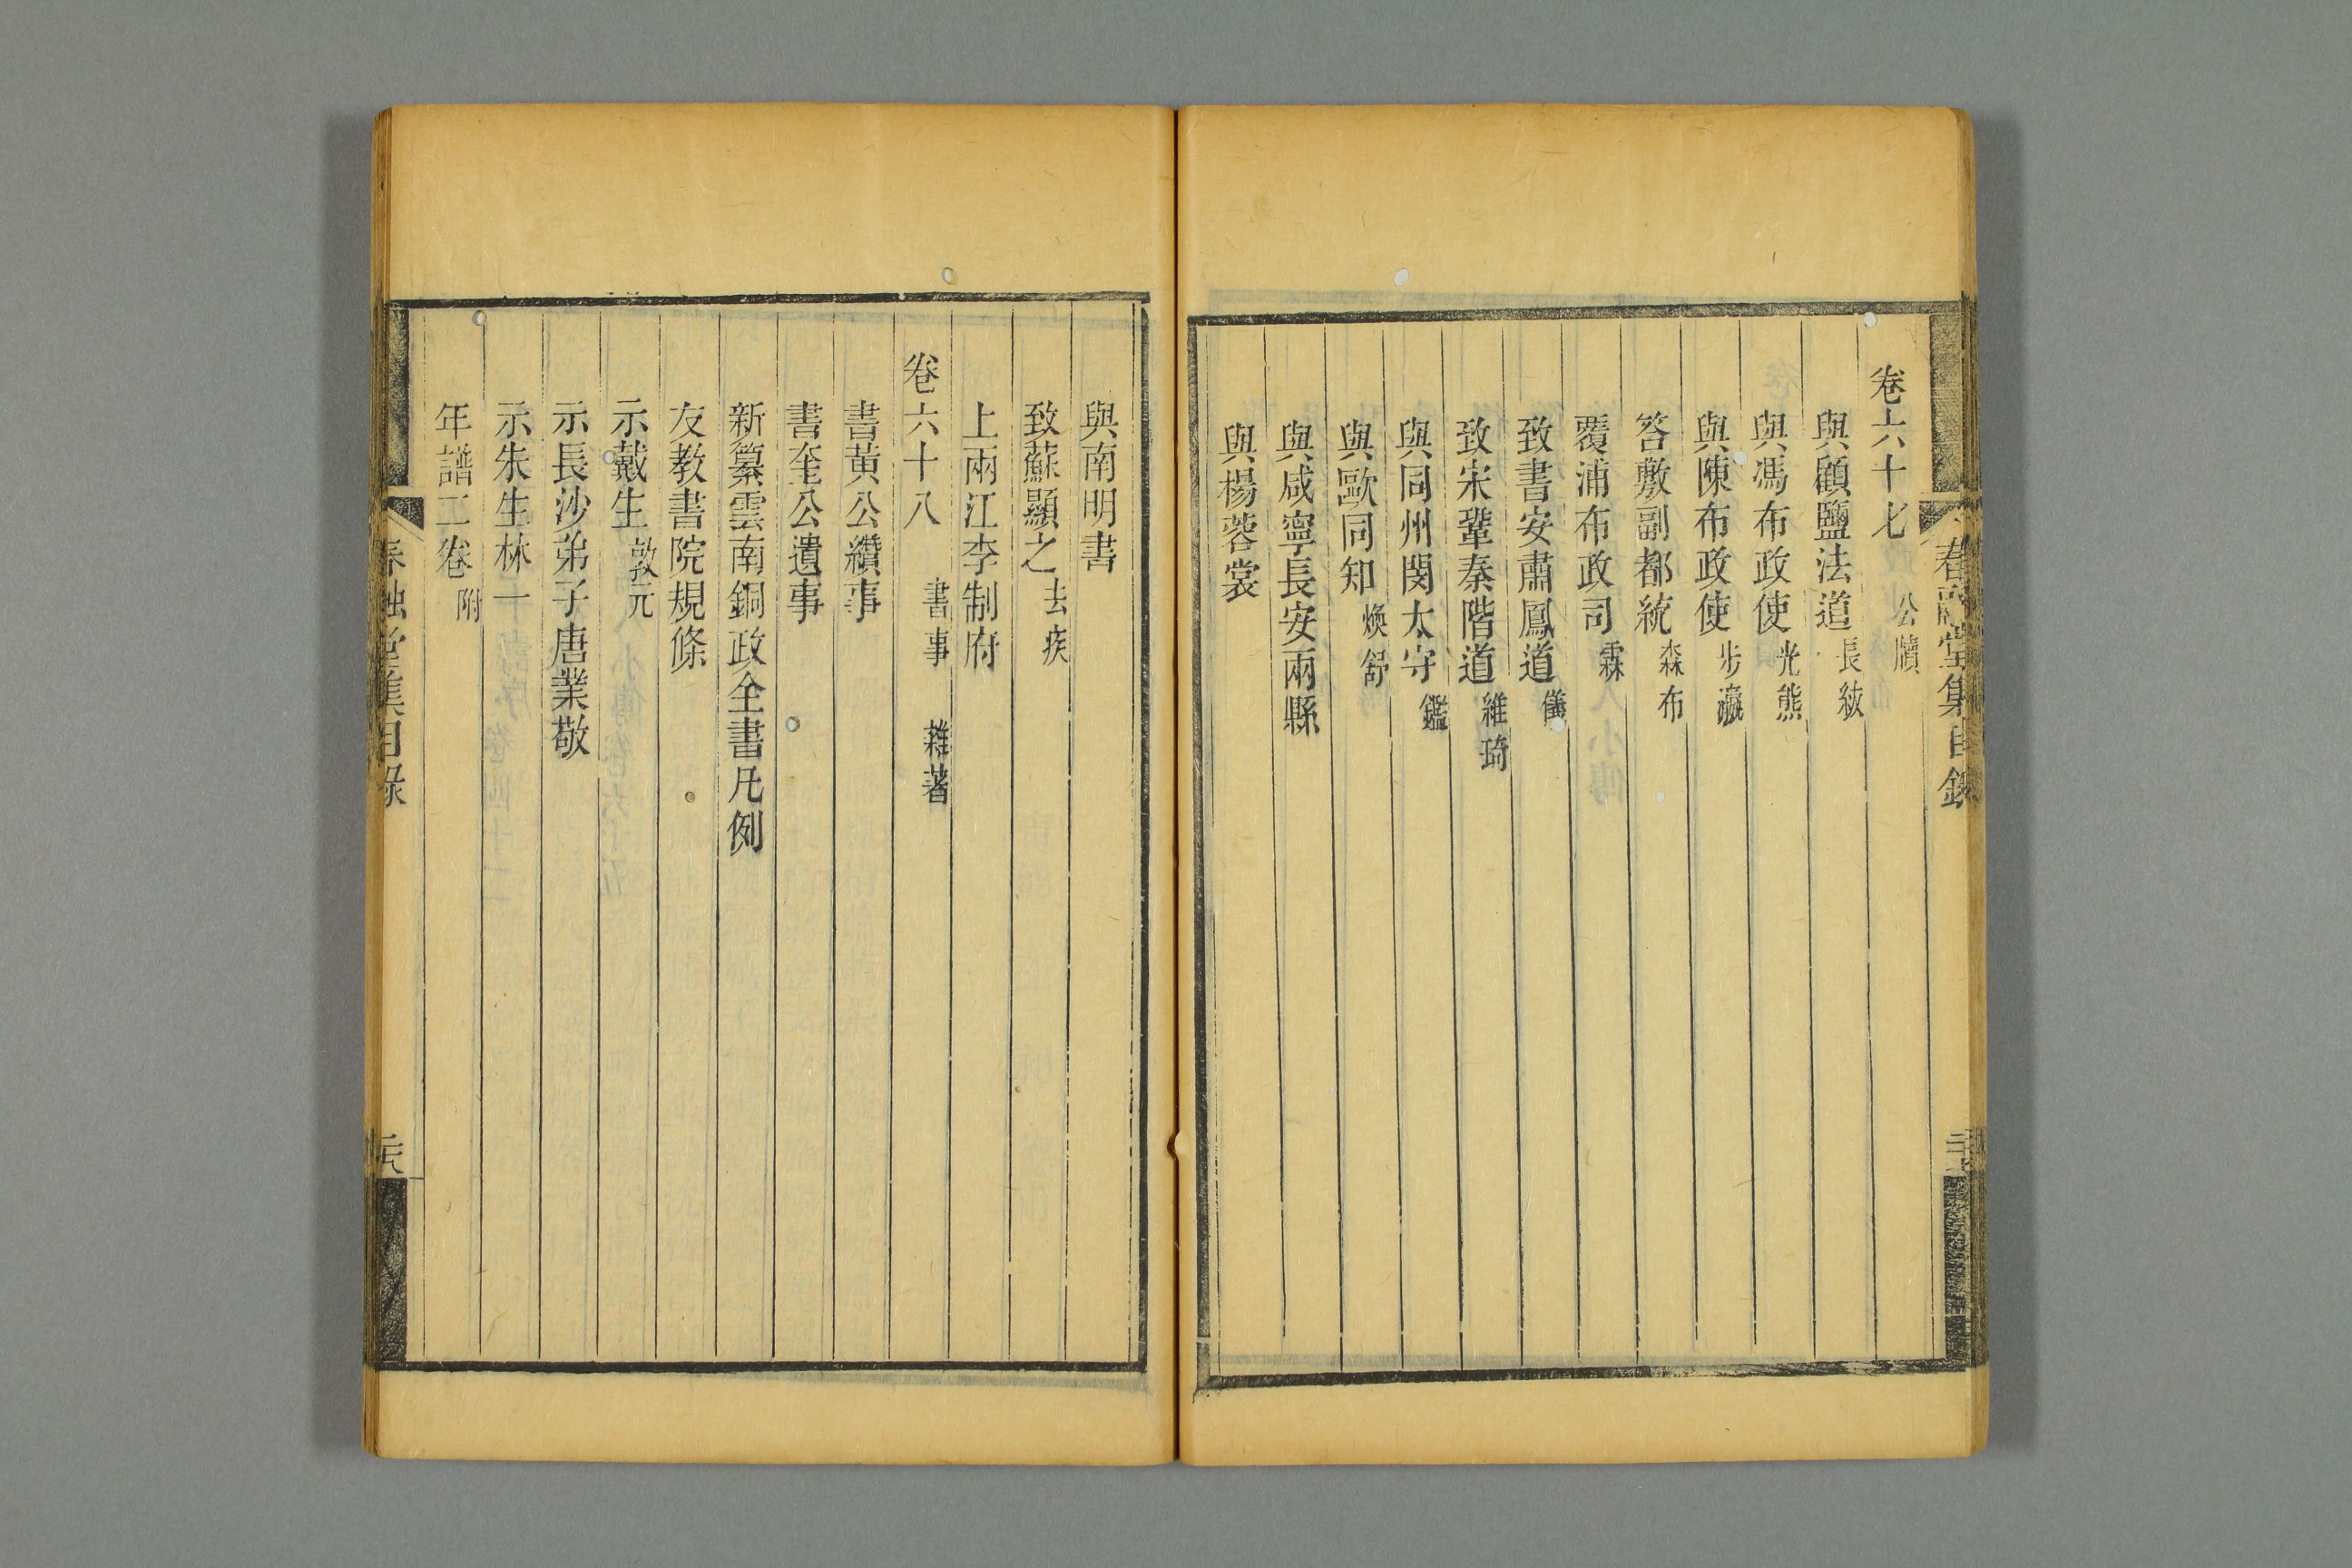 春融堂集目錄
卷六十七 公牘
與顧鹽法道 長紱
與馮布政使 光熊
與陳布政使 步瀛
答敷副都統 森布
覆浦布政司 霖
致書安肅鳳道 儀
致宋鞏秦階道 維琦
與同州閔太守 鑑
與歐同知 煥舒
與咸寧長安兩縣
與楊蓉裳
與南明書
致蘇顯之 去疾
上兩江李制府
卷六十八 書事 雜著
書黃公纘事
書奎公遺事
新纂雲南銅政全書凡例
友教書院規條
示戴生 敦元
示長沙弟子唐業敬
示朱生林一
年譜二卷 附
春融堂集目錄